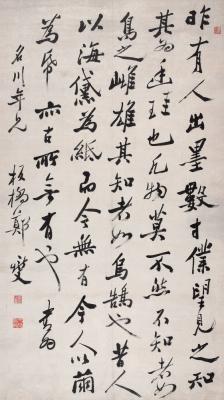 昨有人出墨數寸僕望見之知
其為廷珪也凡物莫不然不知者如
烏之雌雄其知者如烏鵠也昔人
以海苔為紙而今無有今人以繭
為紙亦古所無有也
名川年兄 板橋鄭燮